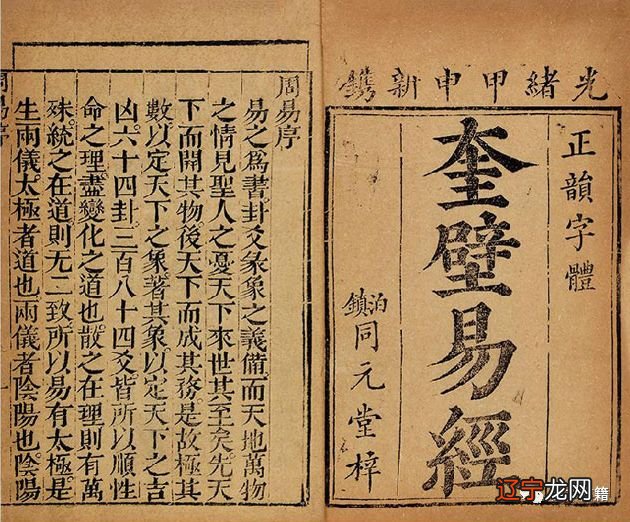 光緒甲申新鐫
正韻字體
奎壁易經
泊鎮同元堂梓
周易序
易之爲書卦爻彖象之義備而天地萬物
之情見聖人之憂天下來世其至矣先天
下而開其物後天下而成其務是故極其
數以定天下之象著其象以定天下之吉
凶六十四卦三百八十四爻皆所以順性
命之理盡變化之道也散之在理則有萬
殊統之在道則无二致所以易有太極是
生兩儀太極者道也兩儀者陰陽也陰陽
周易序
一
辽宁龙网
籍